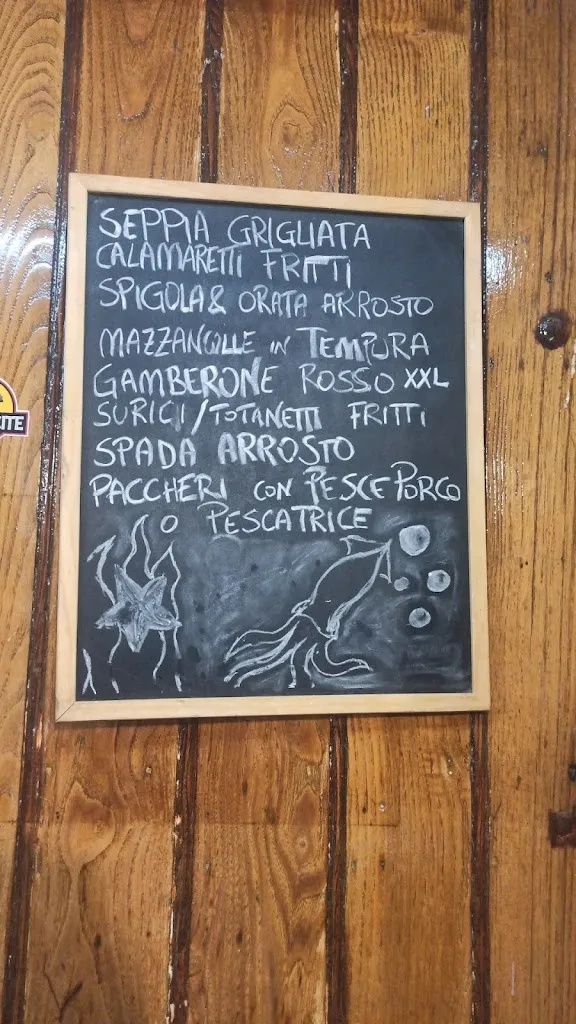 SEPPIA GRIGLIATA
CALAMARETTI FRITTI
SPIGOLA & ORATA ARROSTO
MAZZANCOLLE IN TEMPURA
GAMBERONE ROSSO XXL
SURICI / TOTANETTI FRITTI
SPADA ARROSTO
PACCHERI CON PESCE PORCO
O PESCATRICE